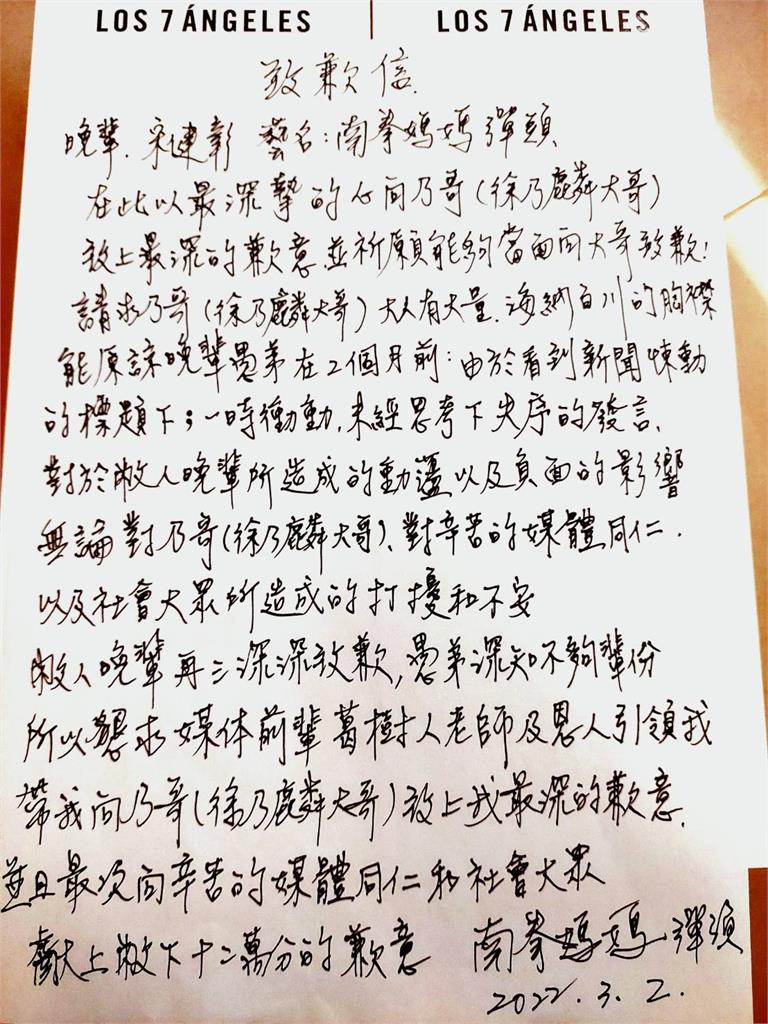 LOS 7 ÁNGELES LOS 7 ÁNGELES
致歉信.
晚輩.宋健彰 藝名:南拳媽媽彈頭
在此以最深摯的心向乃哥(徐乃麟大哥)
致上最深的歉意並祈願能夠當面向大哥致歉!
請求乃哥(徐乃麟大哥)大人有大量.海納百川的胸襟
能原諒晚輩愚弟在2個月前:由於看到新聞悚動
的標題下;一時衝動.未經思考下失序的發言、
對於敝人晚輩所造成的動盪以及負面的影響
無論對乃哥(徐乃麟大哥)、對辛苦的媒體同仁.
以及社會大眾所造成的打擾和不安
敝人晚輩再三深深致歉,愚弟深知不夠輩份
所以懇求媒体前輩葛樹人老師及恩人引領我
帶我向乃哥(徐乃麟大哥)致上我最深的歉意.
並且最次向辛苦的媒體同仁和社會大眾
獻上敝下十二萬分的歉意 南拳媽媽 彈頭
2022.3.2.